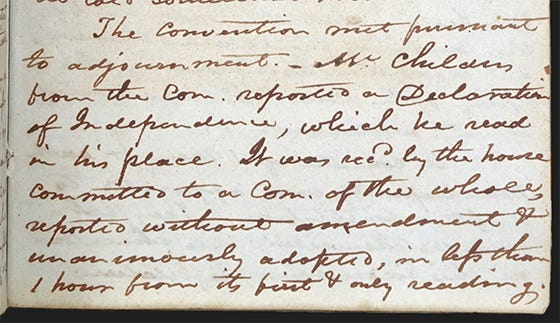 The Convention met pursuant
to adjournment. – Mr Childers
from the Com. reported a Declaration
of Independence, which he read
in his place. It was recd. by the house
committed to a Com. of the whole,
reported without amendment &
unanimously adopted, in less than
1 hour from its first & only reading.